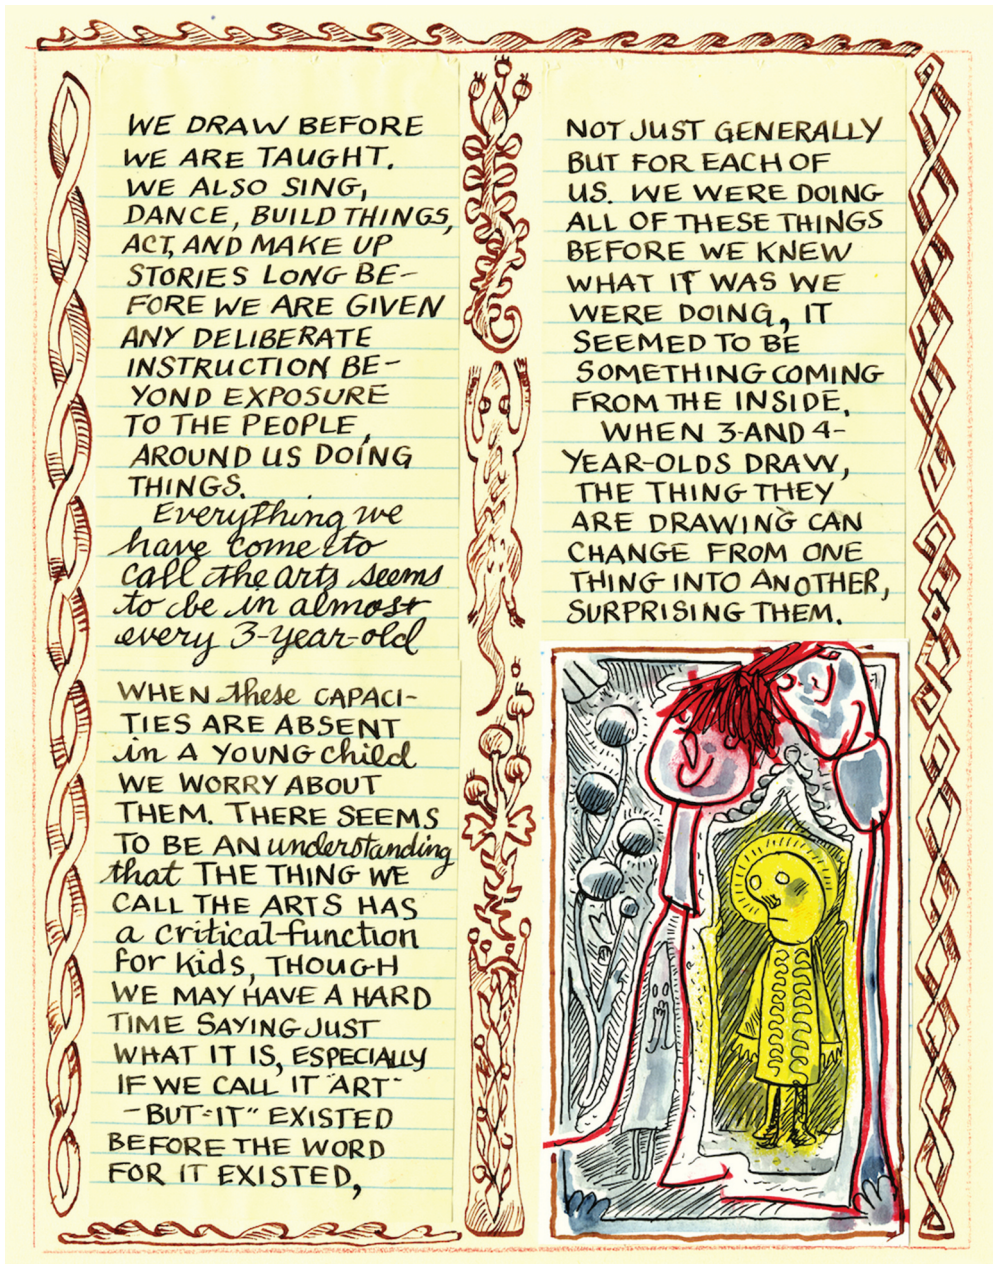 WE DRAW BEFORE
WE ARE TAUGHT.
WE ALSO SING,
DANCE, BUILD THINGS,
ACT, AND MAKE UP
STORIES LONG BE-
FORE WE ARE GIVEN
ANY DELIBERATE
INSTRUCTION BE-
YOND EXPOSURE
TO THE PEOPLE
AROUND US DOING
THINGS.
Everything we
have come to
call the arts seems
to be in almost
every 3-year-old
WHEN these CAPACI-
TIES ARE ABSENT
in A YOUNG child
WE WORRY ABOUT
THEM. THERE SEEMS
TO BE AN understanding
that THE THING WE
CALL THE ARTS HAS
a critical function
for kids, THOUGH
WE MAY HAVE A HARD
TIME SAYING JUST
WHAT IT IS, ESPECIALLY
IF WE CALL IT "ART"
-BUT "IT" EXISTED
BEFORE THE WORD
FOR IT EXISTED,
NOT JUST GENERALLY
BUT FOR EACH OF
US. WE WERE DOING
ALL OF THESE THINGS
BEFORE WE KNEW
WHAT IT WAS WE
WERE DOING, IT
SEEMED TO BE
SOMETHING COMING
FROM THE INSIDE.
WHEN 3-AND 4-
YEAR-OLDS DRAW,
THE THING THEY
ARE DRAWING CAN
CHANGE FROM ONE
THING INTO ANOTHER,
SURPRISING THEM.